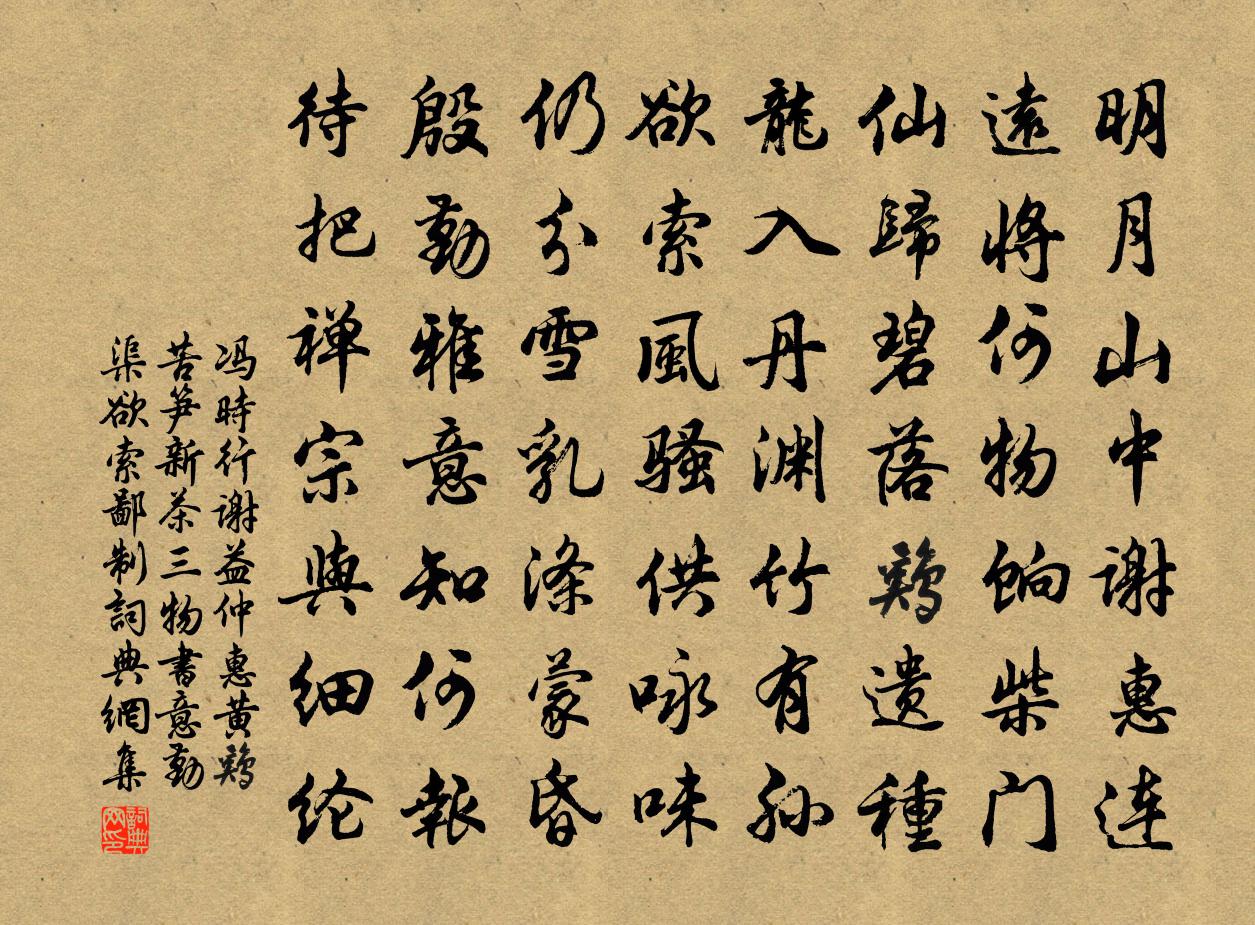 明月山中谢惠连
遠将何物餉柴门
仙歸碧落鷄遗種
龍入丹渊竹有孙
欲索風骚供咏味
仍分雪乳滌蒙昏
殷勤雅意知何報
待把禅宗與细纶
冯時行谢益仲惠黄鷄
苦笋新茶三物書意勤
渠欲索鄙制詞典網集
詞典网印